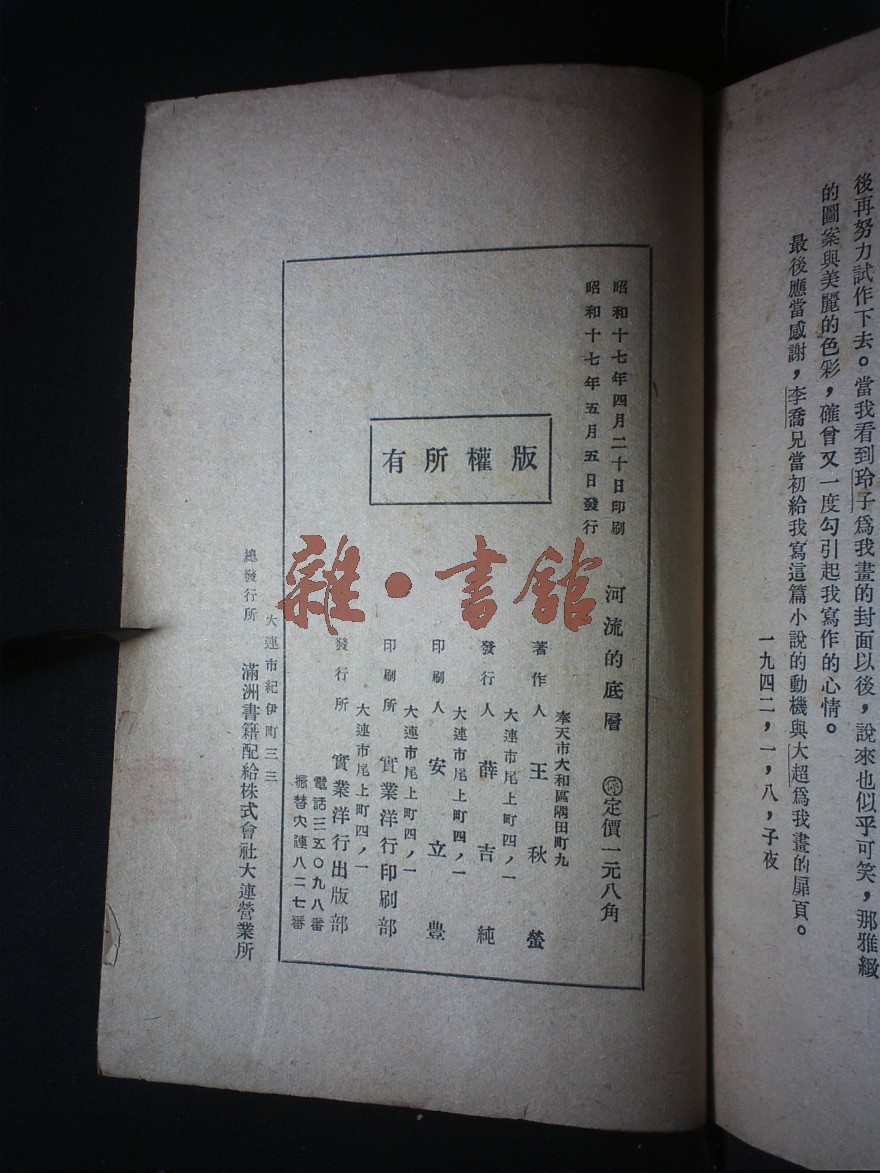 後再努力試作下去。當我看到玲子爲我畫的封面以後，說來也似乎可笑，那雅緻
的圖案與美麗的色彩，確曾又一度勾引起我寫作的心情。
最後應當感謝，李喬兄當初給我寫這篇小說的動機與大超爲我畫的扉頁。
一九四二，一，八，子夜
昭和十七年四月二十日印刷
昭和十七年五月五日發行
版權所有
河流的底層
定價一元八角
奉天市大和區隅田町九
著作人 王秋螢
大連市尾上町四ノ一
發行人 薛吉純
大連市尾上町四ノ一
印刷人 安立豊
大連市尾上町四ノ一
印刷所 實業洋行印刷部
大連市尾上町四ノ一
發行所 實業洋行出版部
電話二五〇九八番
振替大連八二七番
大連市紀伊町三三
總發行所 滿洲書籍配給株式會社大連營業所
雜·書館